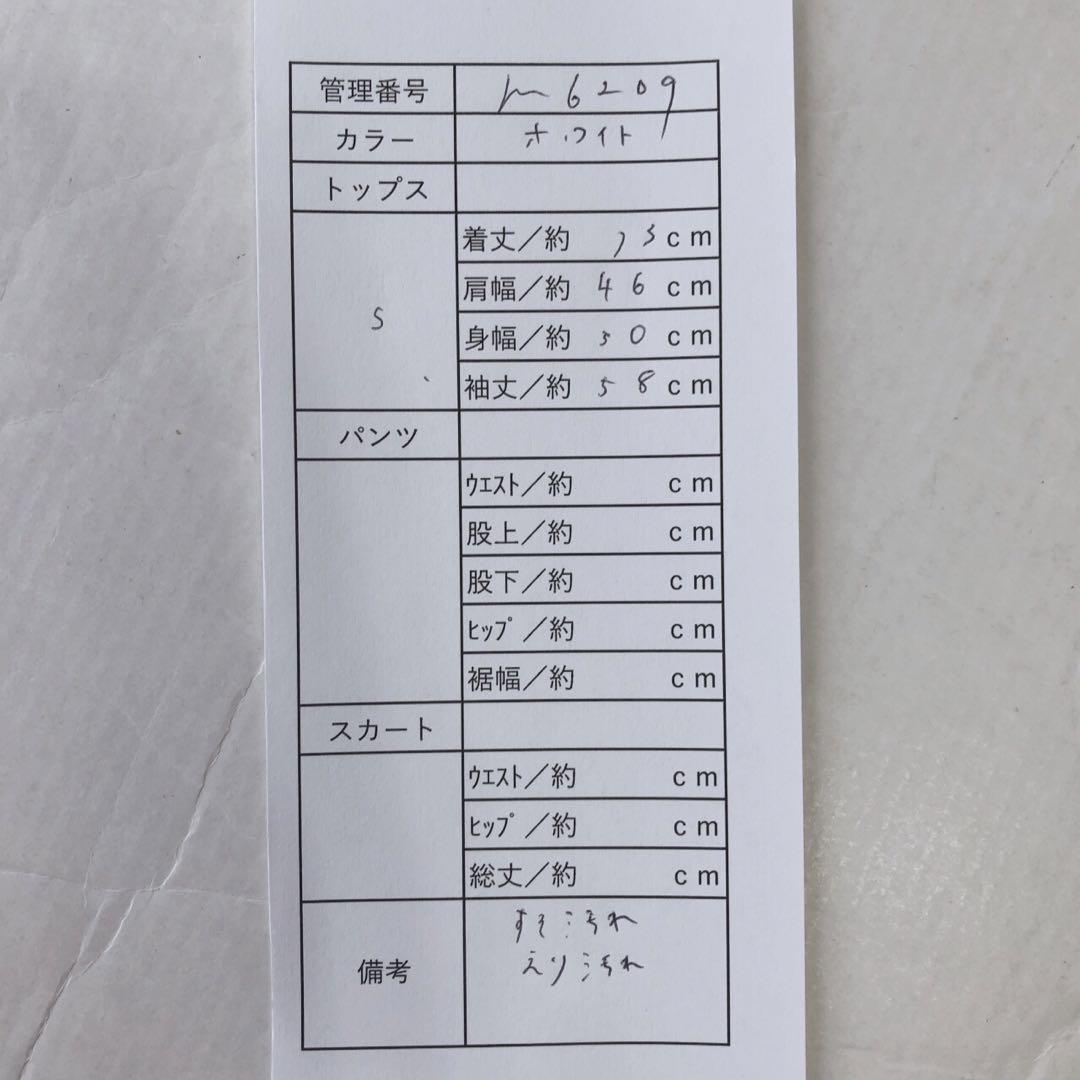 管理番号 m6209
カラー ホワイト
トップス
S
着丈／約 75cm
肩幅／約 46cm
身幅／約 50cm
袖丈／約 58cm
パンツ
ｳｴｽﾄ／約 cm
股上／約 cm
股下／約 cm
ﾋｯﾌﾟ／約 cm
裾幅／約 cm
スカート
ｳｴｽﾄ／約 cm
ﾋｯﾌﾟ／約 cm
総丈／約 cm
備考
すそ汚れ
えり汚れ